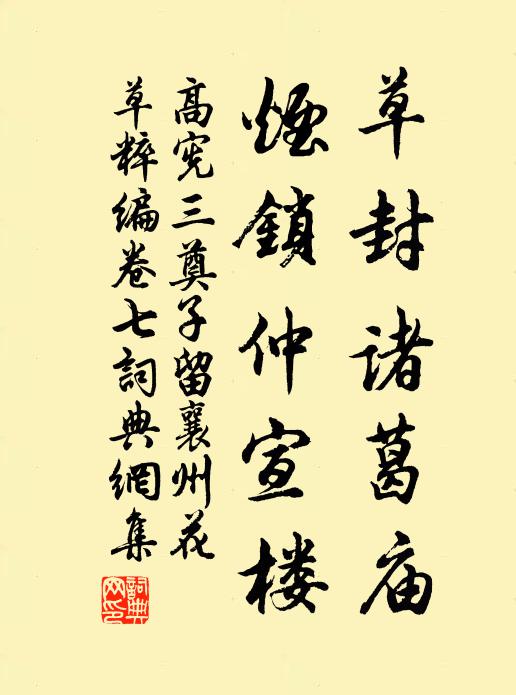 草封诸葛庙
煙鎖仲宣楼
高宪三奠子留襄州花
草粹编卷七詞典網集
詞典网印